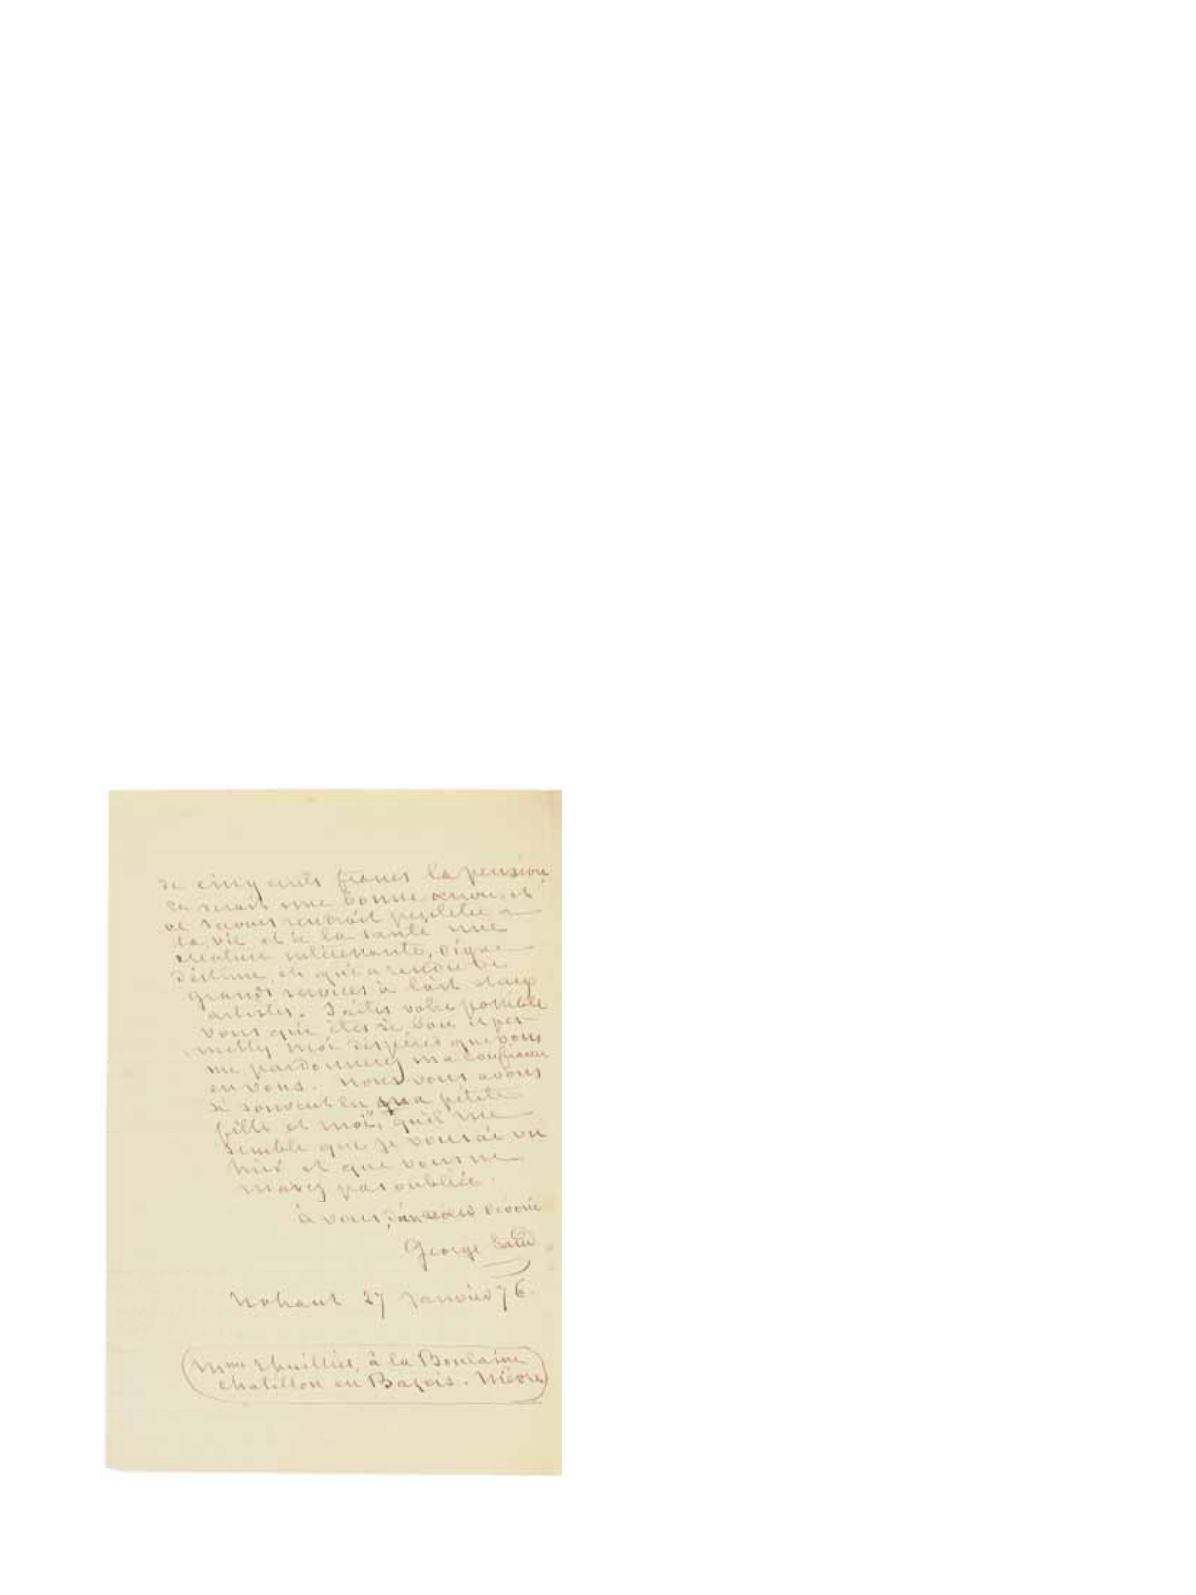 de cinq cents francs la pension
ce serait une bonne œuvre, et
ce secours rendrait peutêtre à
la vie et à la santé une
créature intéressante, digne
d'estime, et qui a rendu de
grands services à l'art et aux
artistes. Faites votre possible
vous qui êtes si bon et per-
mettez moi d'espérer que vous
me pardonnerez ma confiance
en vous. Nous vous avons
si souvent lu ma petite
fille et moi, qu'il me
semble que je vous ai vu
hier et que vous ne
m'avez pas oubliée.
à vous, dévoué
George Sand
Nohant 27 janvier 76.
Mme Thuillier, à la Boulaine
chatillon en Bazois. Nièvre